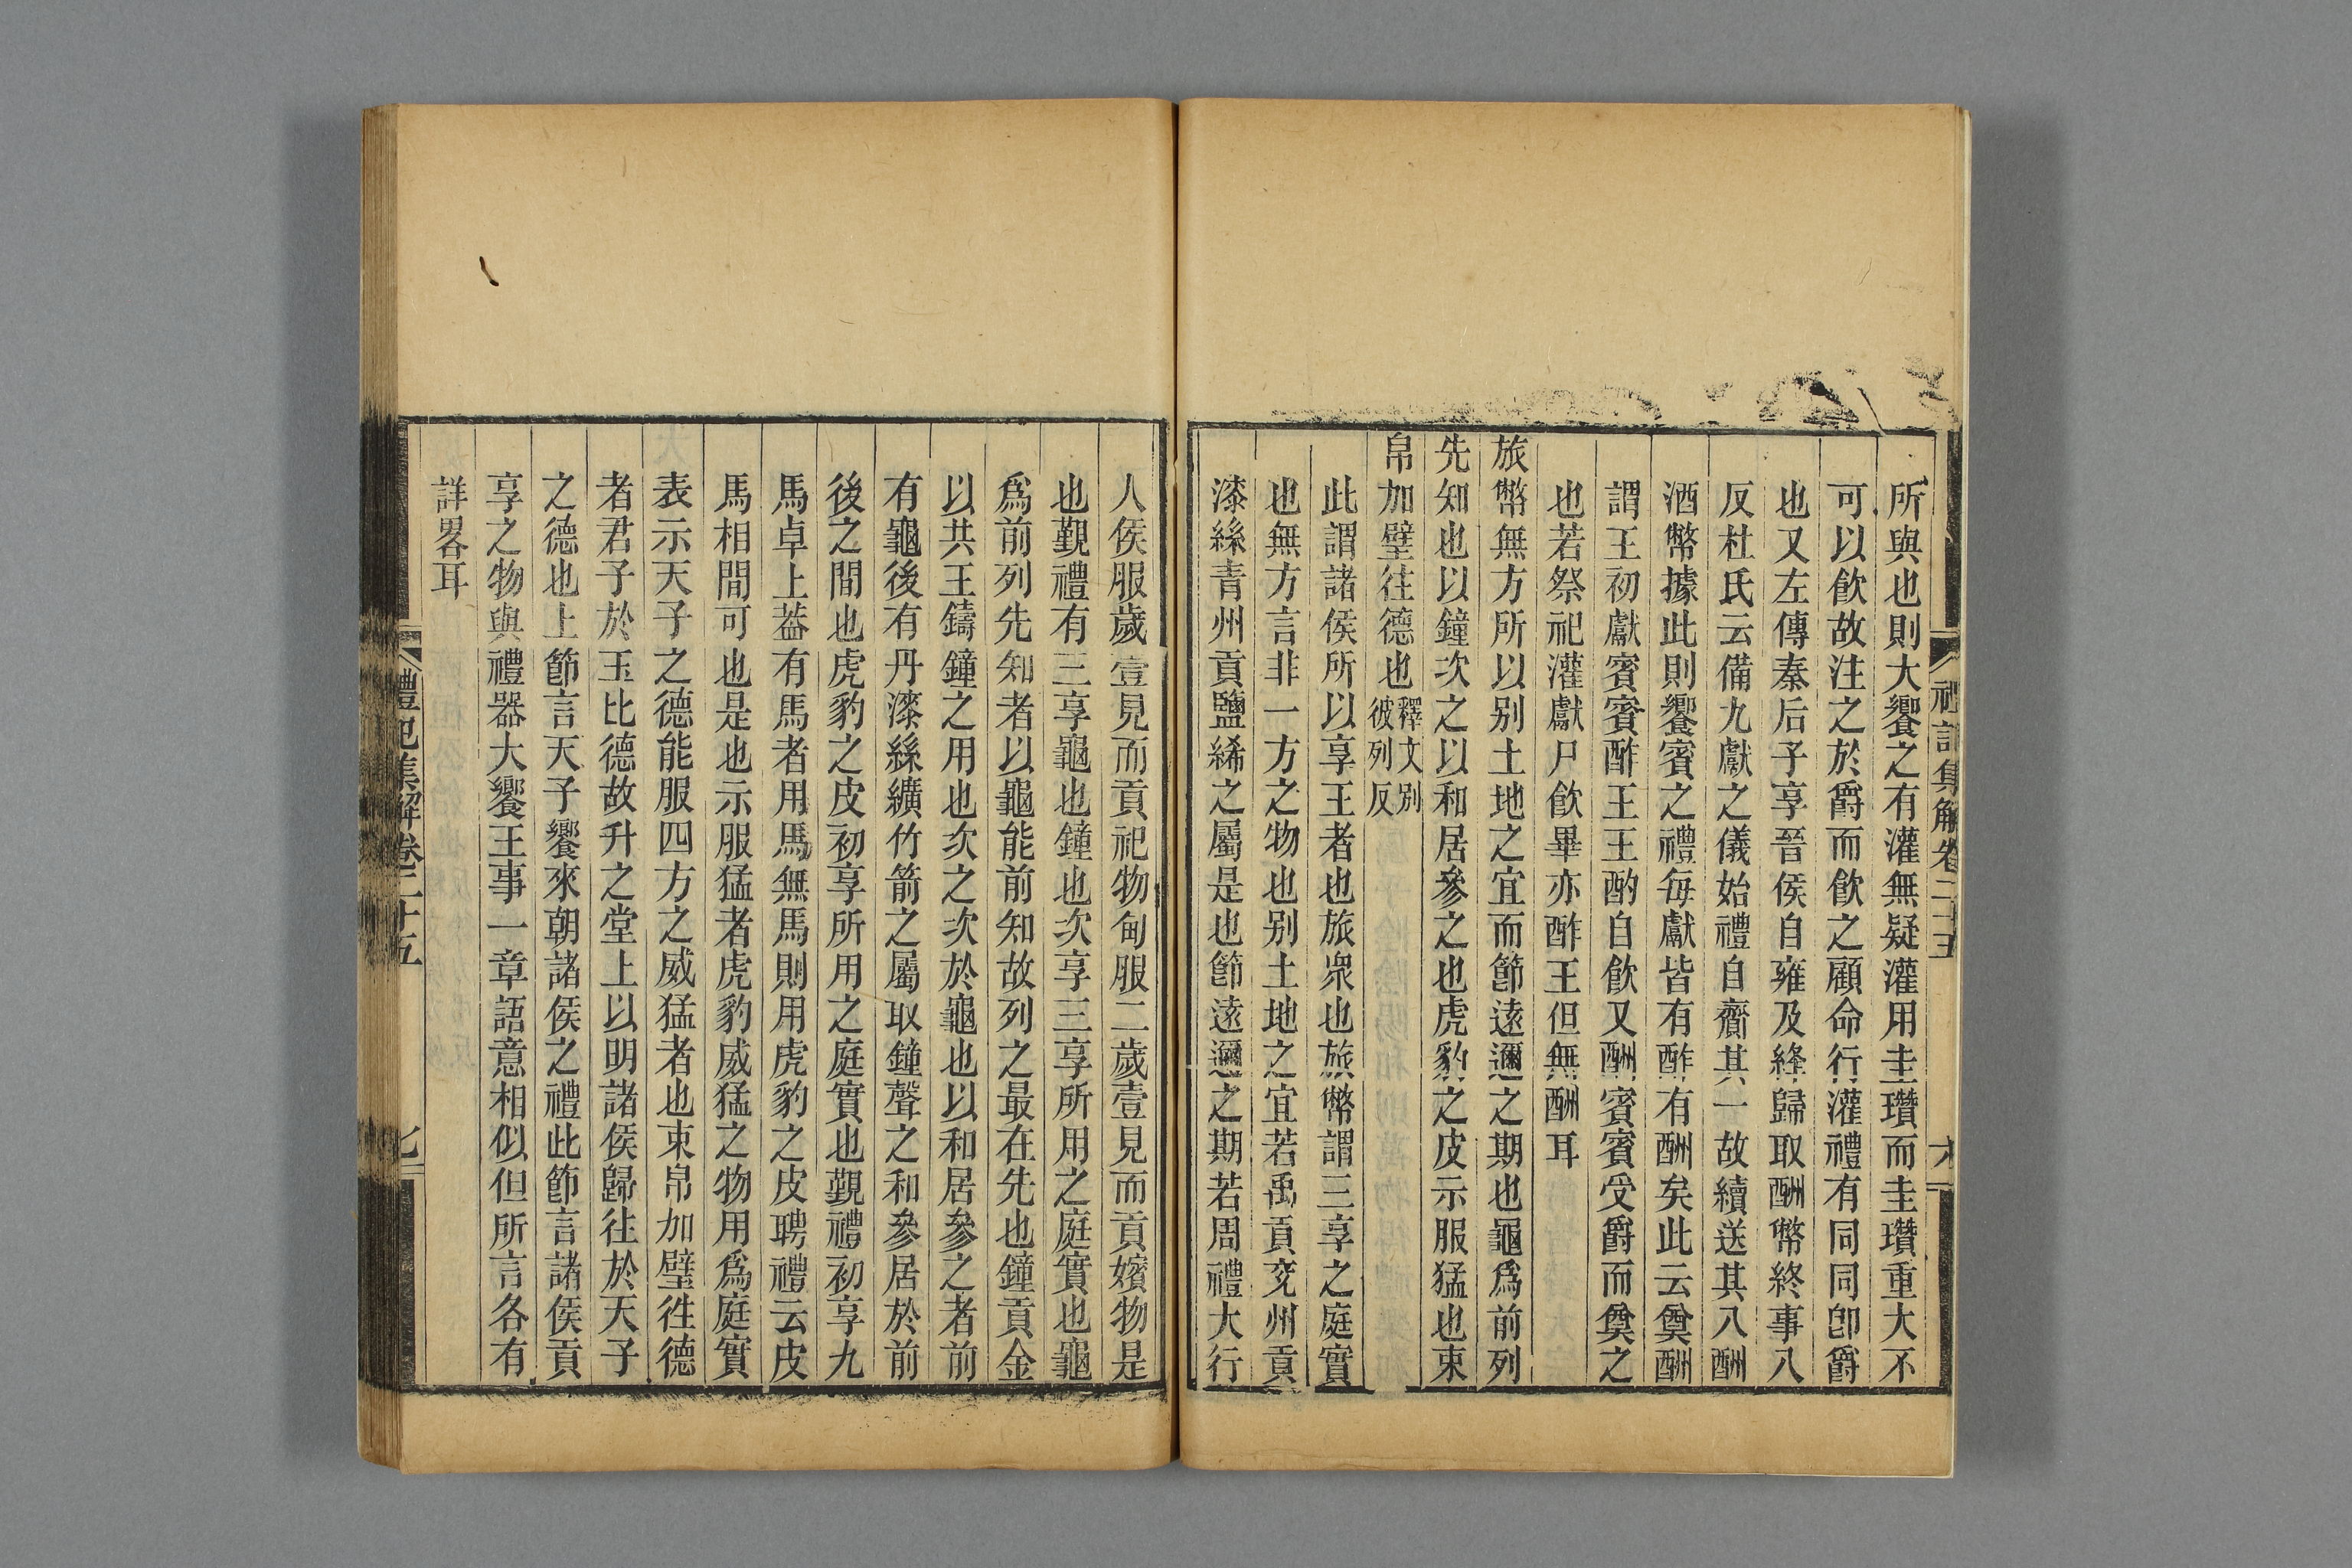 禮記集解卷二十五
六
所與也則大饗之有灌無疑灌用圭瓚而圭瓚重大不
可以飲故注之於爵而飲之顧命行灌禮有同同卽爵
也又左傳秦后子享晉侯自雍及絳歸取酬幣終事八
反杜氏云備九獻之儀始禮自齎其一故續送其八酬
酒幣據此則饗賓之禮每獻皆有酢有酬矣此云奠酬
謂王初獻賓賓酢王王酌自飲又酬賓賓受爵而奠之
也若祭祀灌獻尸飲畢亦酢王但無酬耳
旅幣無方所以別土地之宜而節遠邇之期也龜爲前列
先知也以鐘次之以和居參之也虎豹之皮示服猛也束
帛加璧往德也釋文別
彼列反
此謂諸侯所以享王者也旅衆也旅幣謂三享之庭實
也無方言非一方之物也別土地之宜若禹貢兗州貢
漆絲青州貢鹽絺之屬是也節遠邇之期若周禮大行
人侯服歲壹見而貢祀物甸服二歲壹見而貢嬪物是
也覲禮有三享龜也鐘也次享三享所用之庭實也龜
爲前列先知者以龜能前知故列之最在先也鐘貢金
以共王鑄鐘之用也次之次於龜也以和居參之者前
有龜後有丹漆絲纊竹箭之屬取鐘聲之和參居於前
後之間也虎豹之皮初享所用之庭實也覲禮初享九
馬卓上葢有馬者用馬無馬則用虎豹之皮聘禮云皮
馬相間可也是也示服猛者虎豹威猛之物用爲庭實
表示天子之德能服四方之威猛者也束帛加璧往德
者君子於玉比德故升之堂上以明諸侯歸往於天子
之德也上節言天子饗來朝諸侯之禮此節言諸侯貢
享之物與禮器大饗王事一章語意相似但所言各有
詳畧耳
禮記集解卷二十五
七